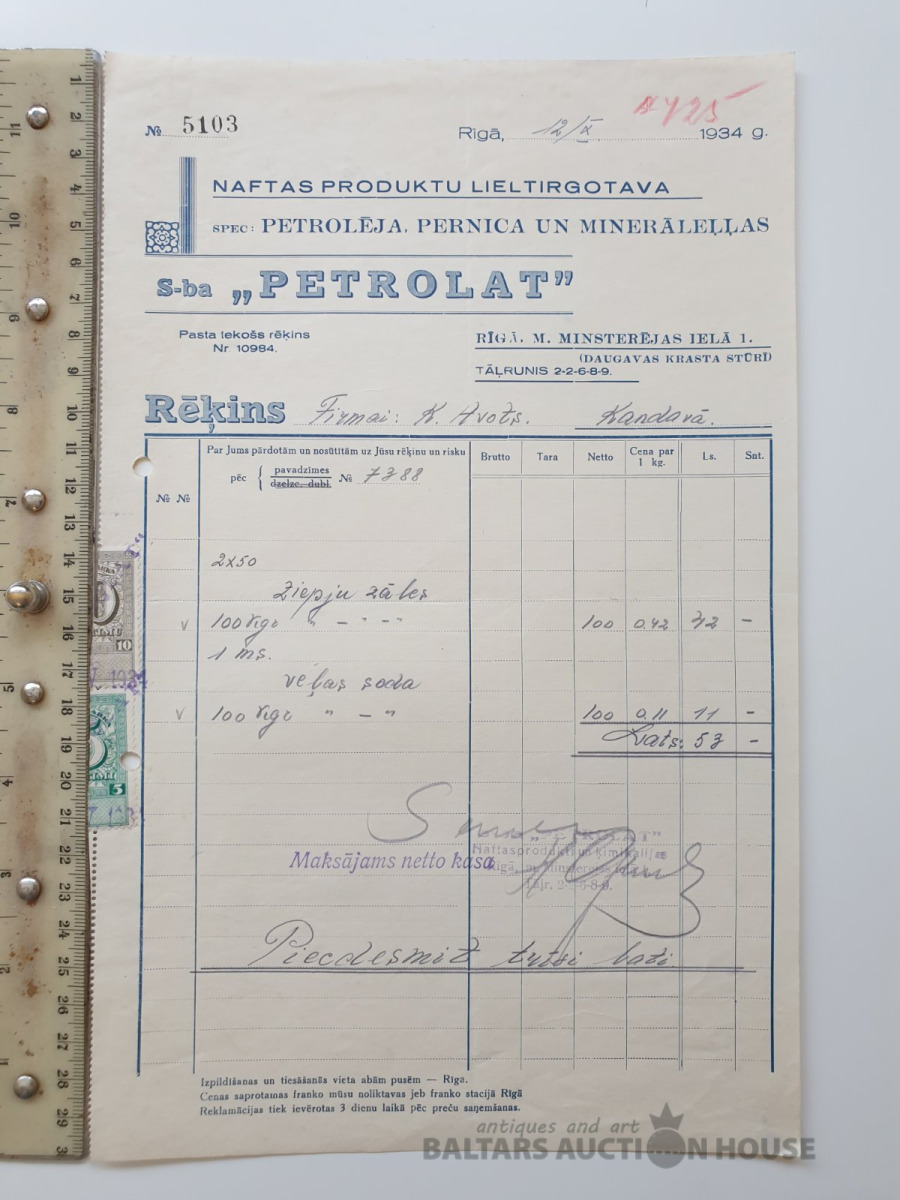 № 5103
Rīgā, 12/X 1934 g.
NAFTAS PRODUKTU LIELTIRGOTAVA
SPEC: PETROLĒJA, PERNICA UN MINERĀLEĻĻAS
S-ba „PETROLAT”
Pasta tekošs rēķins
Nr 10984.
RĪGĀ, M. MINSTERĒJAS IELĀ 1.
(DAUGAVAS KRASTA STŪRĪ)
TĀĻRUNIS 2-2-6-8-9.
Rēķins Firmai: K. Avots. Kandavā.
№ №
Par Jums pārdotām un nosūtītām uz Jūsu rēķinu un risku
pēc { pavadzīmes dzelzc. dubl. № 7388
Brutto Tara Netto Cena par 1 kg. Ls. Snt.
2x50
Ziepju zāles
v 100 kgr " - " - " 100 0.42 42 -
1 ms.
veļas soda
v 100 kgr " - " 100 0.11 11 -
Lats: 53 -
Maksājams netto kasa
Naftasprodukti un ķimikalijas
Tāļr. 2-2-6-8-9.
Piecdesmit trīsi lati
Izpildīšanas un tiesāšanās vieta abām pusēm — Rīga.
Cenas saprotamas franko mūsu noliktavas jeb franko stacijā Rīgā
Reklamācijas tiek ievērotas 3 dienu laikā pēc preču saņemšanas.
10
5
1 2 3 4 5 6 7 8 9 10 11 12 13 14 15 16 17 18 19 20 21 22 23 24 25 26 27 28 29
antiques and art
BALTARS AUCTION HOUSE